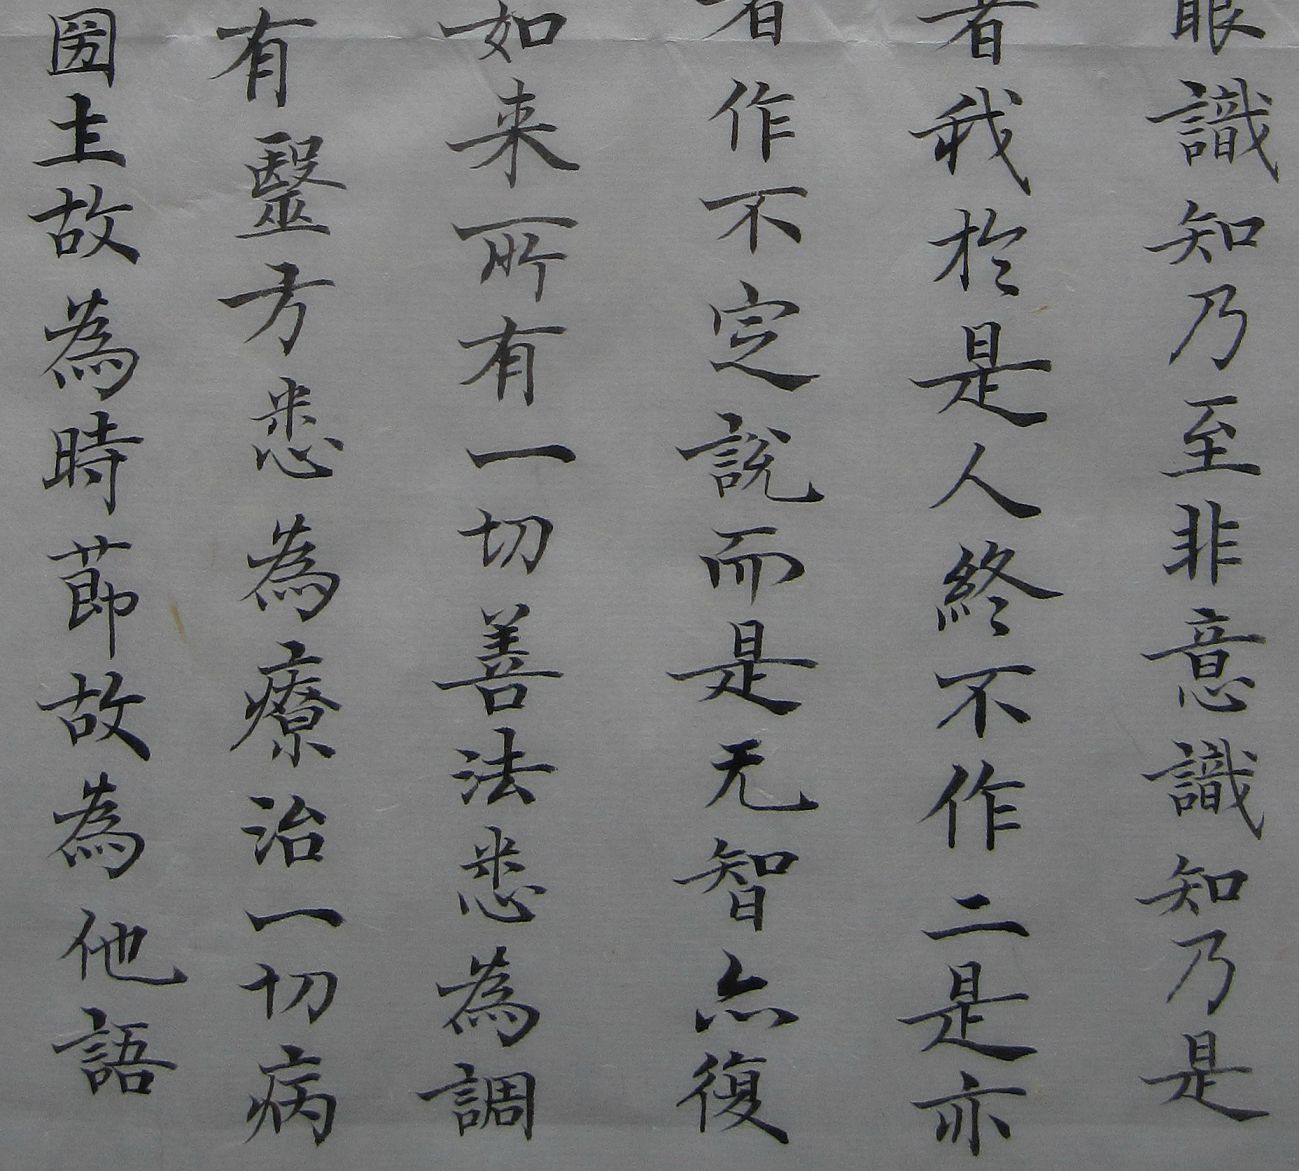 眼識知乃至非意識知乃是
者我於是人終不作二是亦
者作不定說而是无智亦復
如来所有一切善法悉為調
有毉方悉為療治一切病
國土故為時莭故為他語